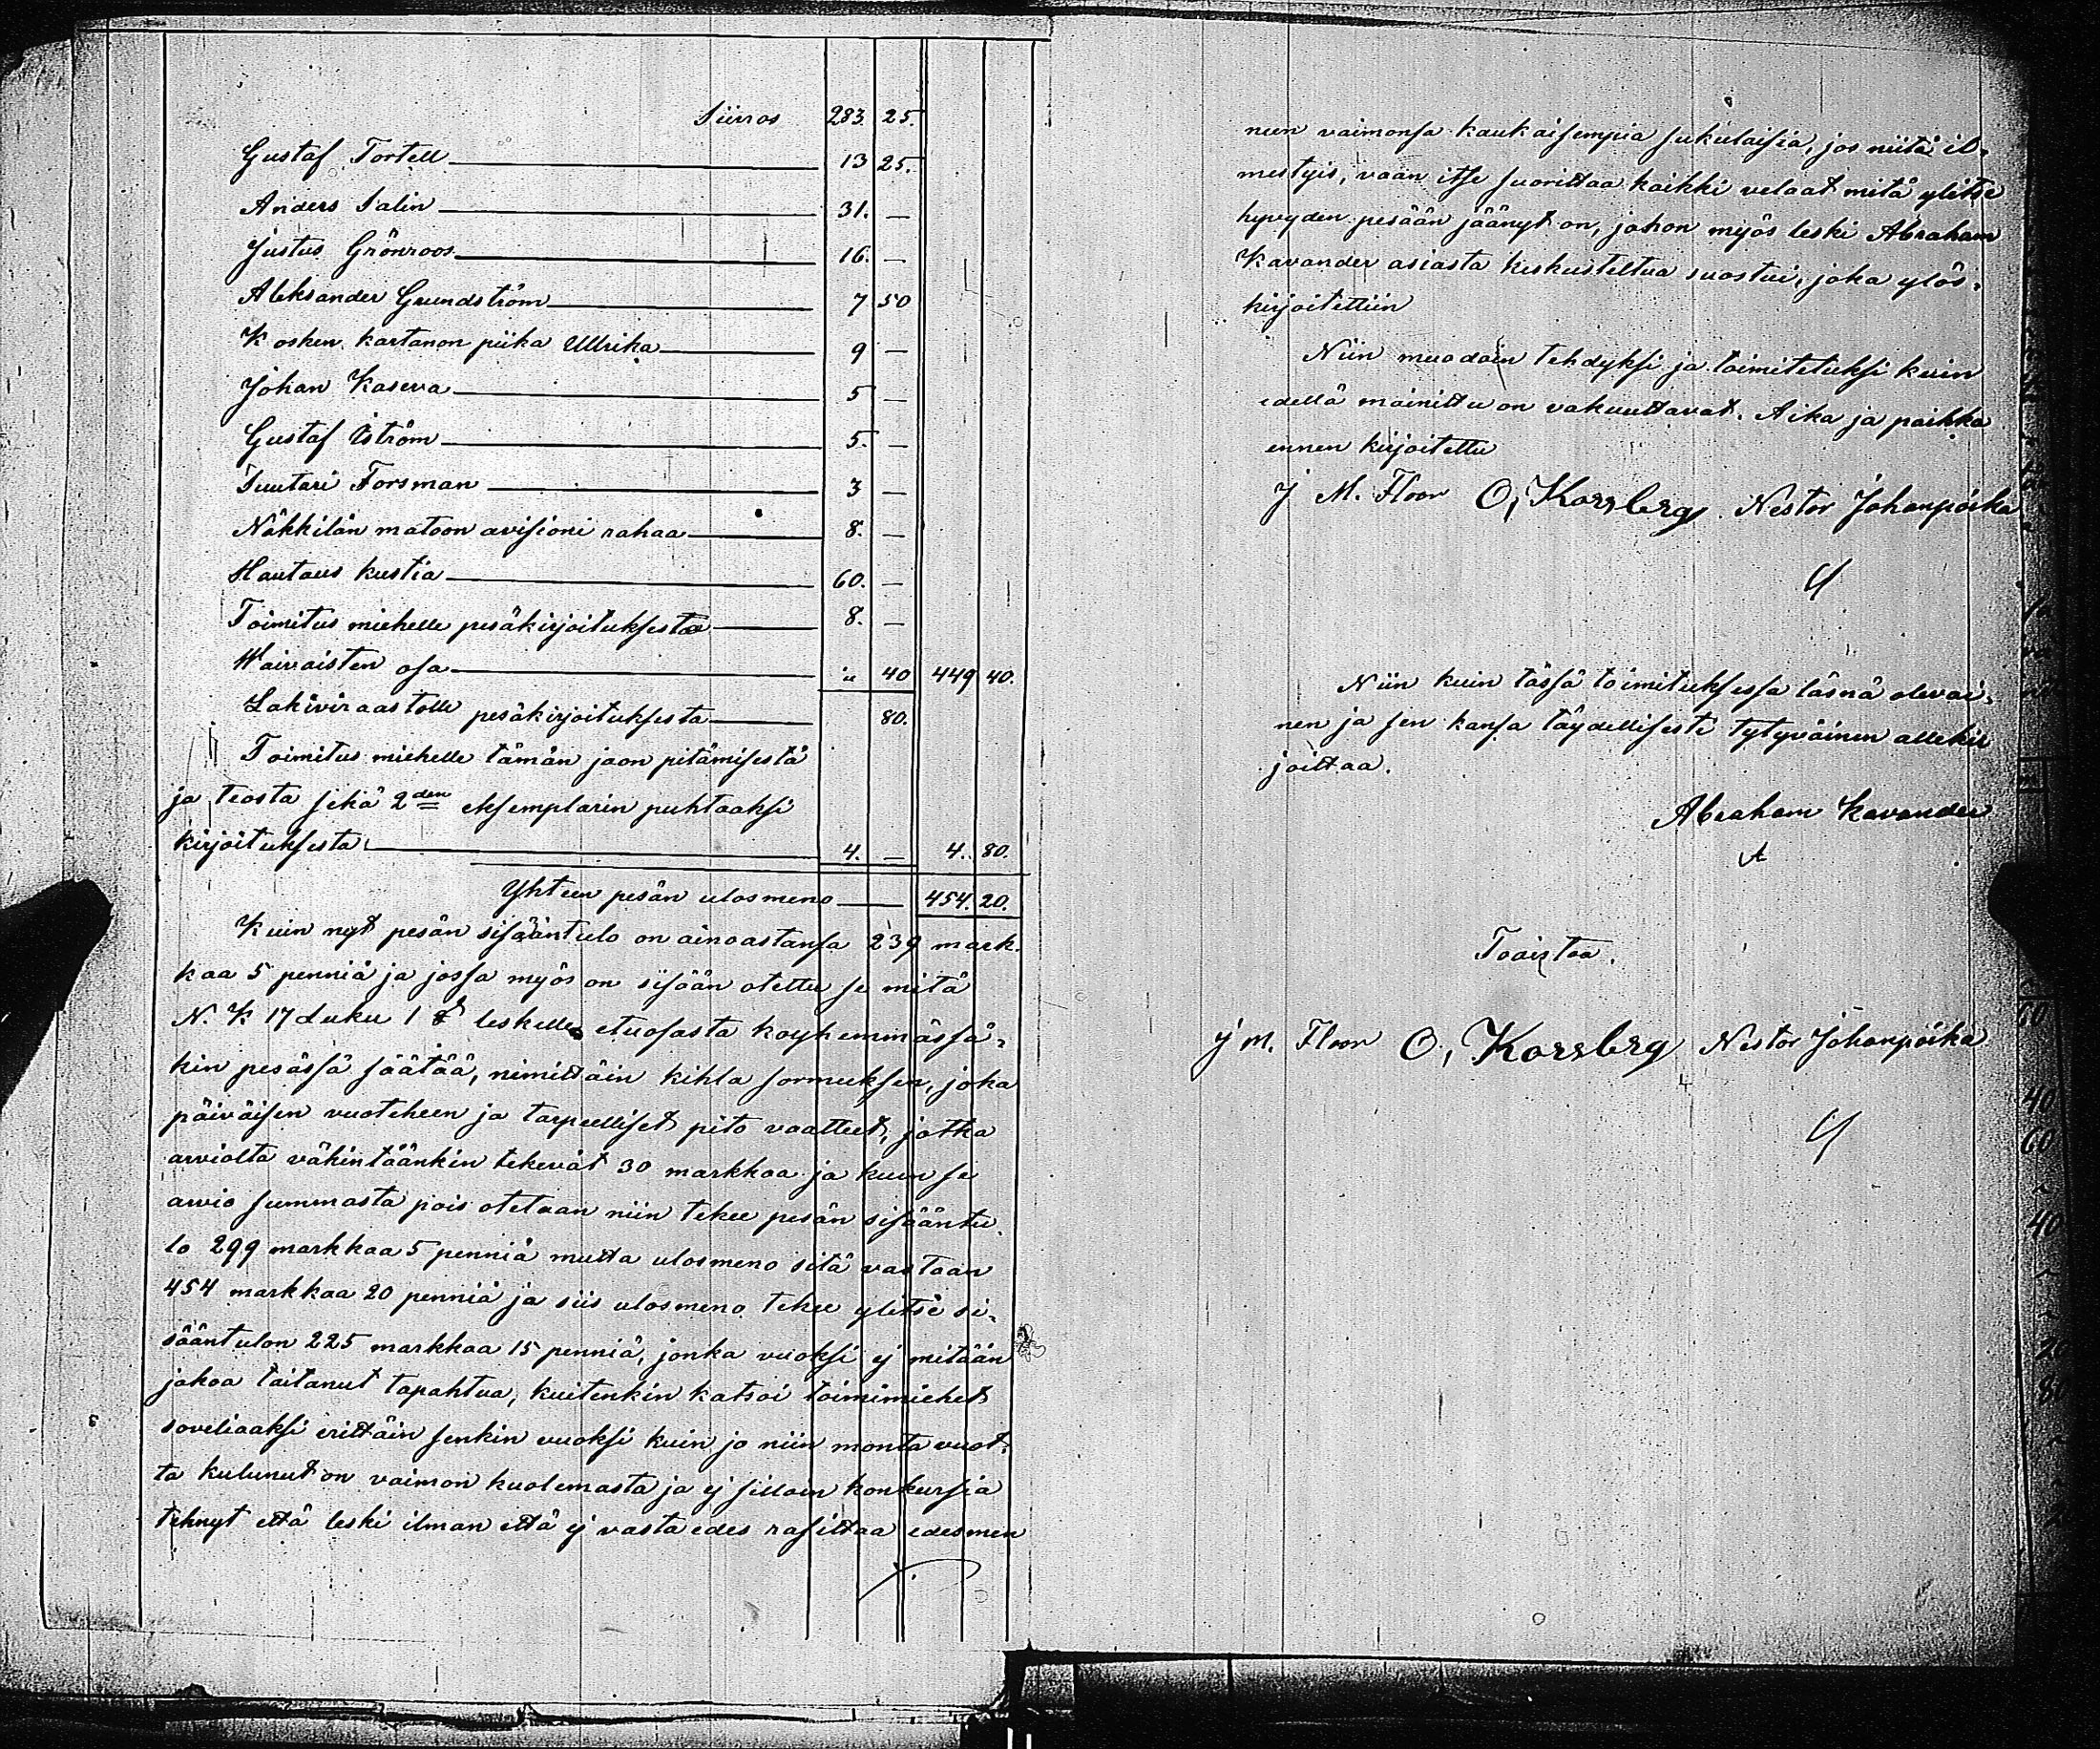 Siirros 283. 25.
Gustaf Tortell 13 25.
Anders Salin 31. —
Justus Grönroos 16. —
Aleksander Grundström 7 50
Kosken kartanon piika Ullrika 9 —
Johan Kaserva 5 —
Gustaf Öström 5. —
Suutari Forsman 3 —
Näkkilän matoon avisioni rahaa 8. —
Hautaus kustia 60. —
Toimitus miehelle pesäkirjoituksesta 8. —
Waivaisten osa " 40 449 40.
Lakiviraastolle pesäkirjoituksesta 80.
Toimitus miehelle tämän jaon pitämisestä
ja teosta sekä 2den eksemplarin puhtaaksi
kirjoituksesta 4. — 4. 80.
Yhteen pesän ulosmeno 454. 20.
Kuin nyt pesän sisääntulo on ainoastansa 239 mark-
kaa 5 penniä ja jossa myös on sisään otettu se mitä
N. K 17 Luku 1 § leskelle etuosasta köyhemmässä-
kin pesässä säätää, nimittäin kihla sormuksen, joka
päiväisen vuoteheen ja tarpeelliset pito vaatteet, jotka
arviolta vähintäänkin tekevät 30 markkaa ja kuin se
arvio summasta pois otetaan niin tekee pesän sisääntu-
lo 299 markkaa 5 penniä mutta ulosmeno sitä vastaan
454 markkaa 20 penniä ja siis ulosmeno tekee ylitse si-
sääntulon 225 markkaa 15 penniä, jonka vuoksi ej mitään
jakoa taitanut tapahtua, kuitenkin katsoi toimimiehet
soveliaaksi erittäin senkin vuoksi kuin jo niin monta vuot-
ta kulunut on vaimon kuolemasta ja ej silloin konkursia
tehnyt että leski ilman että ej vasta edes rasittaa edesmen
neen vaimonsa kaukaisempia sukulaisia, jos niitä il-
mestyis, vaan itse suorittaa kaikki velaat mitä ylitse
hyvyden pesään jäänyt on, johon myös leski Abraham
Kavander asiasta keskusteltua suostui, joka ylös-
kirjoitettiin
Niin muodoin tehdyksi ja toimitetuksi kuin
edellä mainittu on vakuuttavat. Aika ja paikka
ennen kirjoitettu
J M. Floor O, Korsberg Nestor Johanpoika
Niin kuin tässä toimituksessa läsnä olevai-
nen ja sen kansa täydellisesti tytyväinen allekir
joittaa.
Abraham Kavander
Toaistaa.
J M. Floor O, Korsberg Nestor Johanpoika